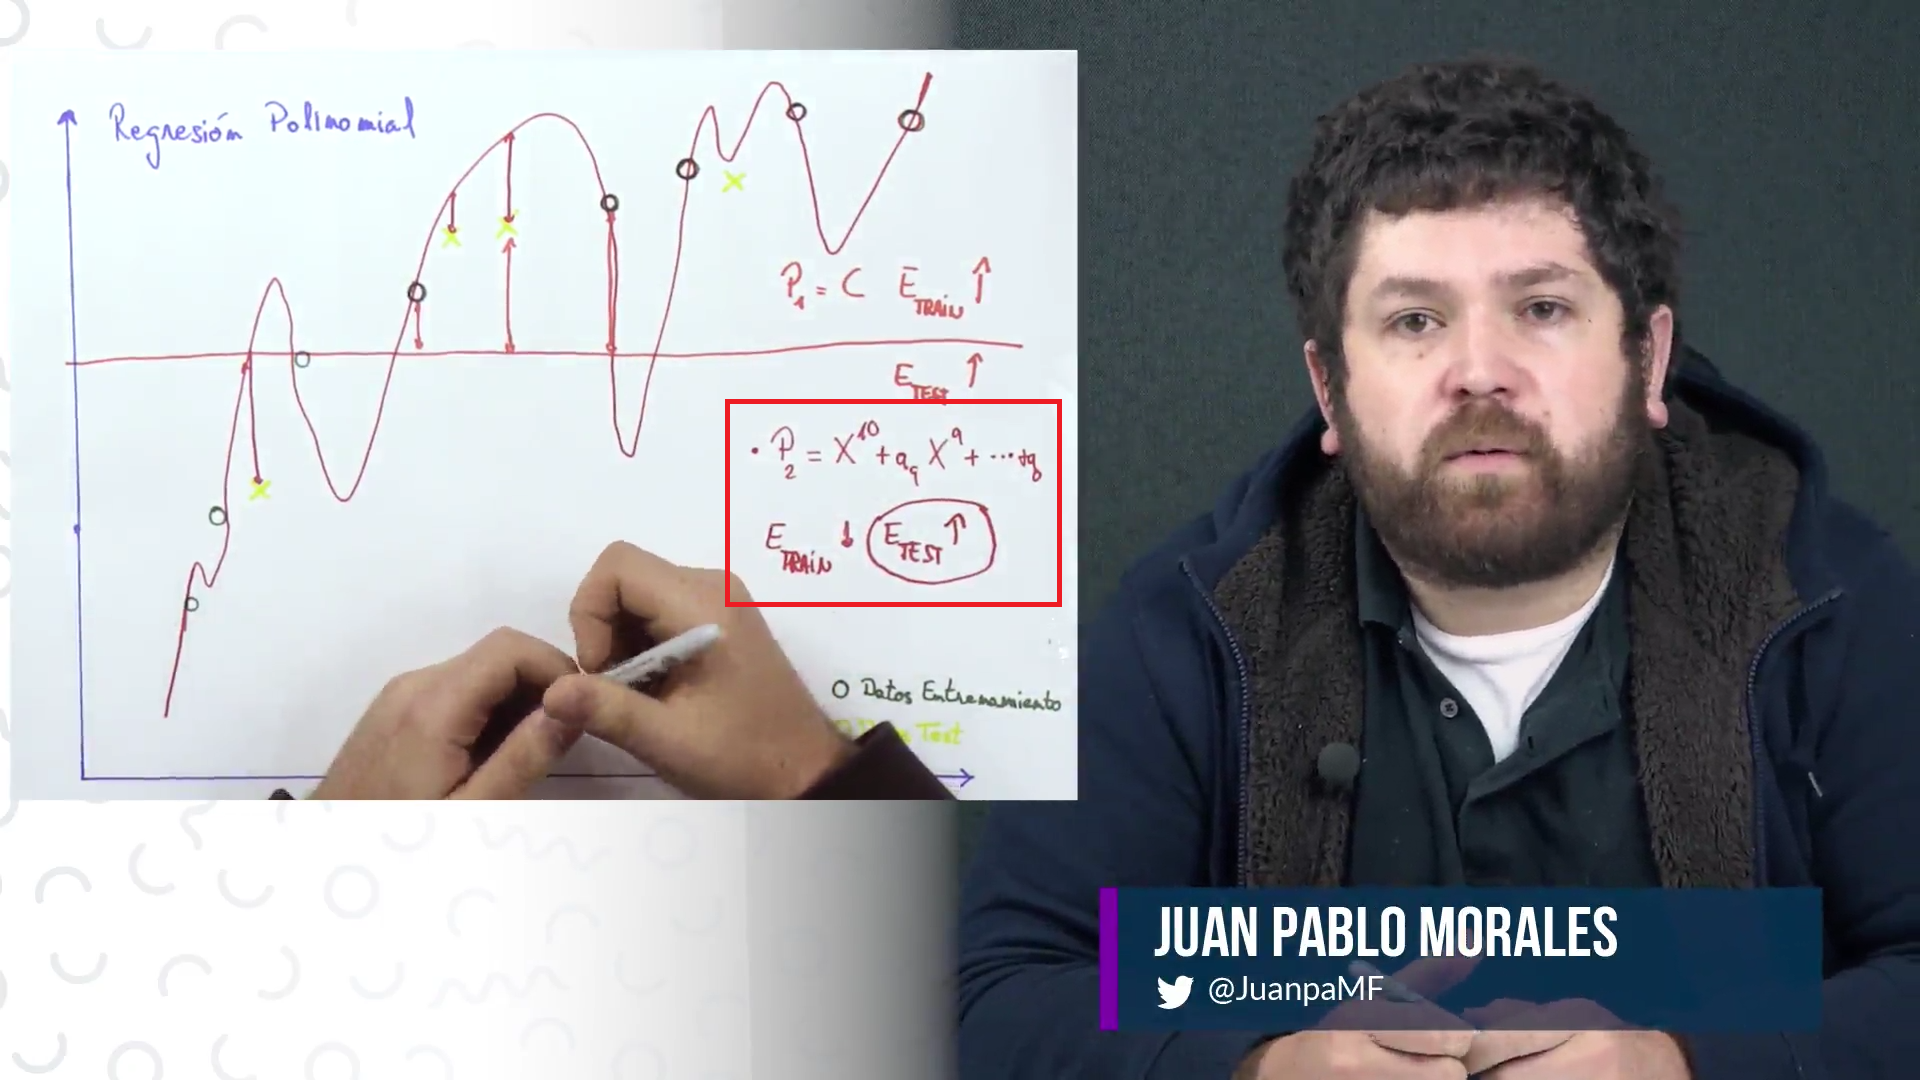 Regresión Polinomial
P₁ = C E_TRAIN ↑
E_TEST ↑
• P₂ = X¹⁰ + a₉ X⁹ + ...
E_TRAIN ↓ E_TEST ↑
O Datos Entrenamiento
Test
JUAN PABLO MORALES
@JuanpaMF